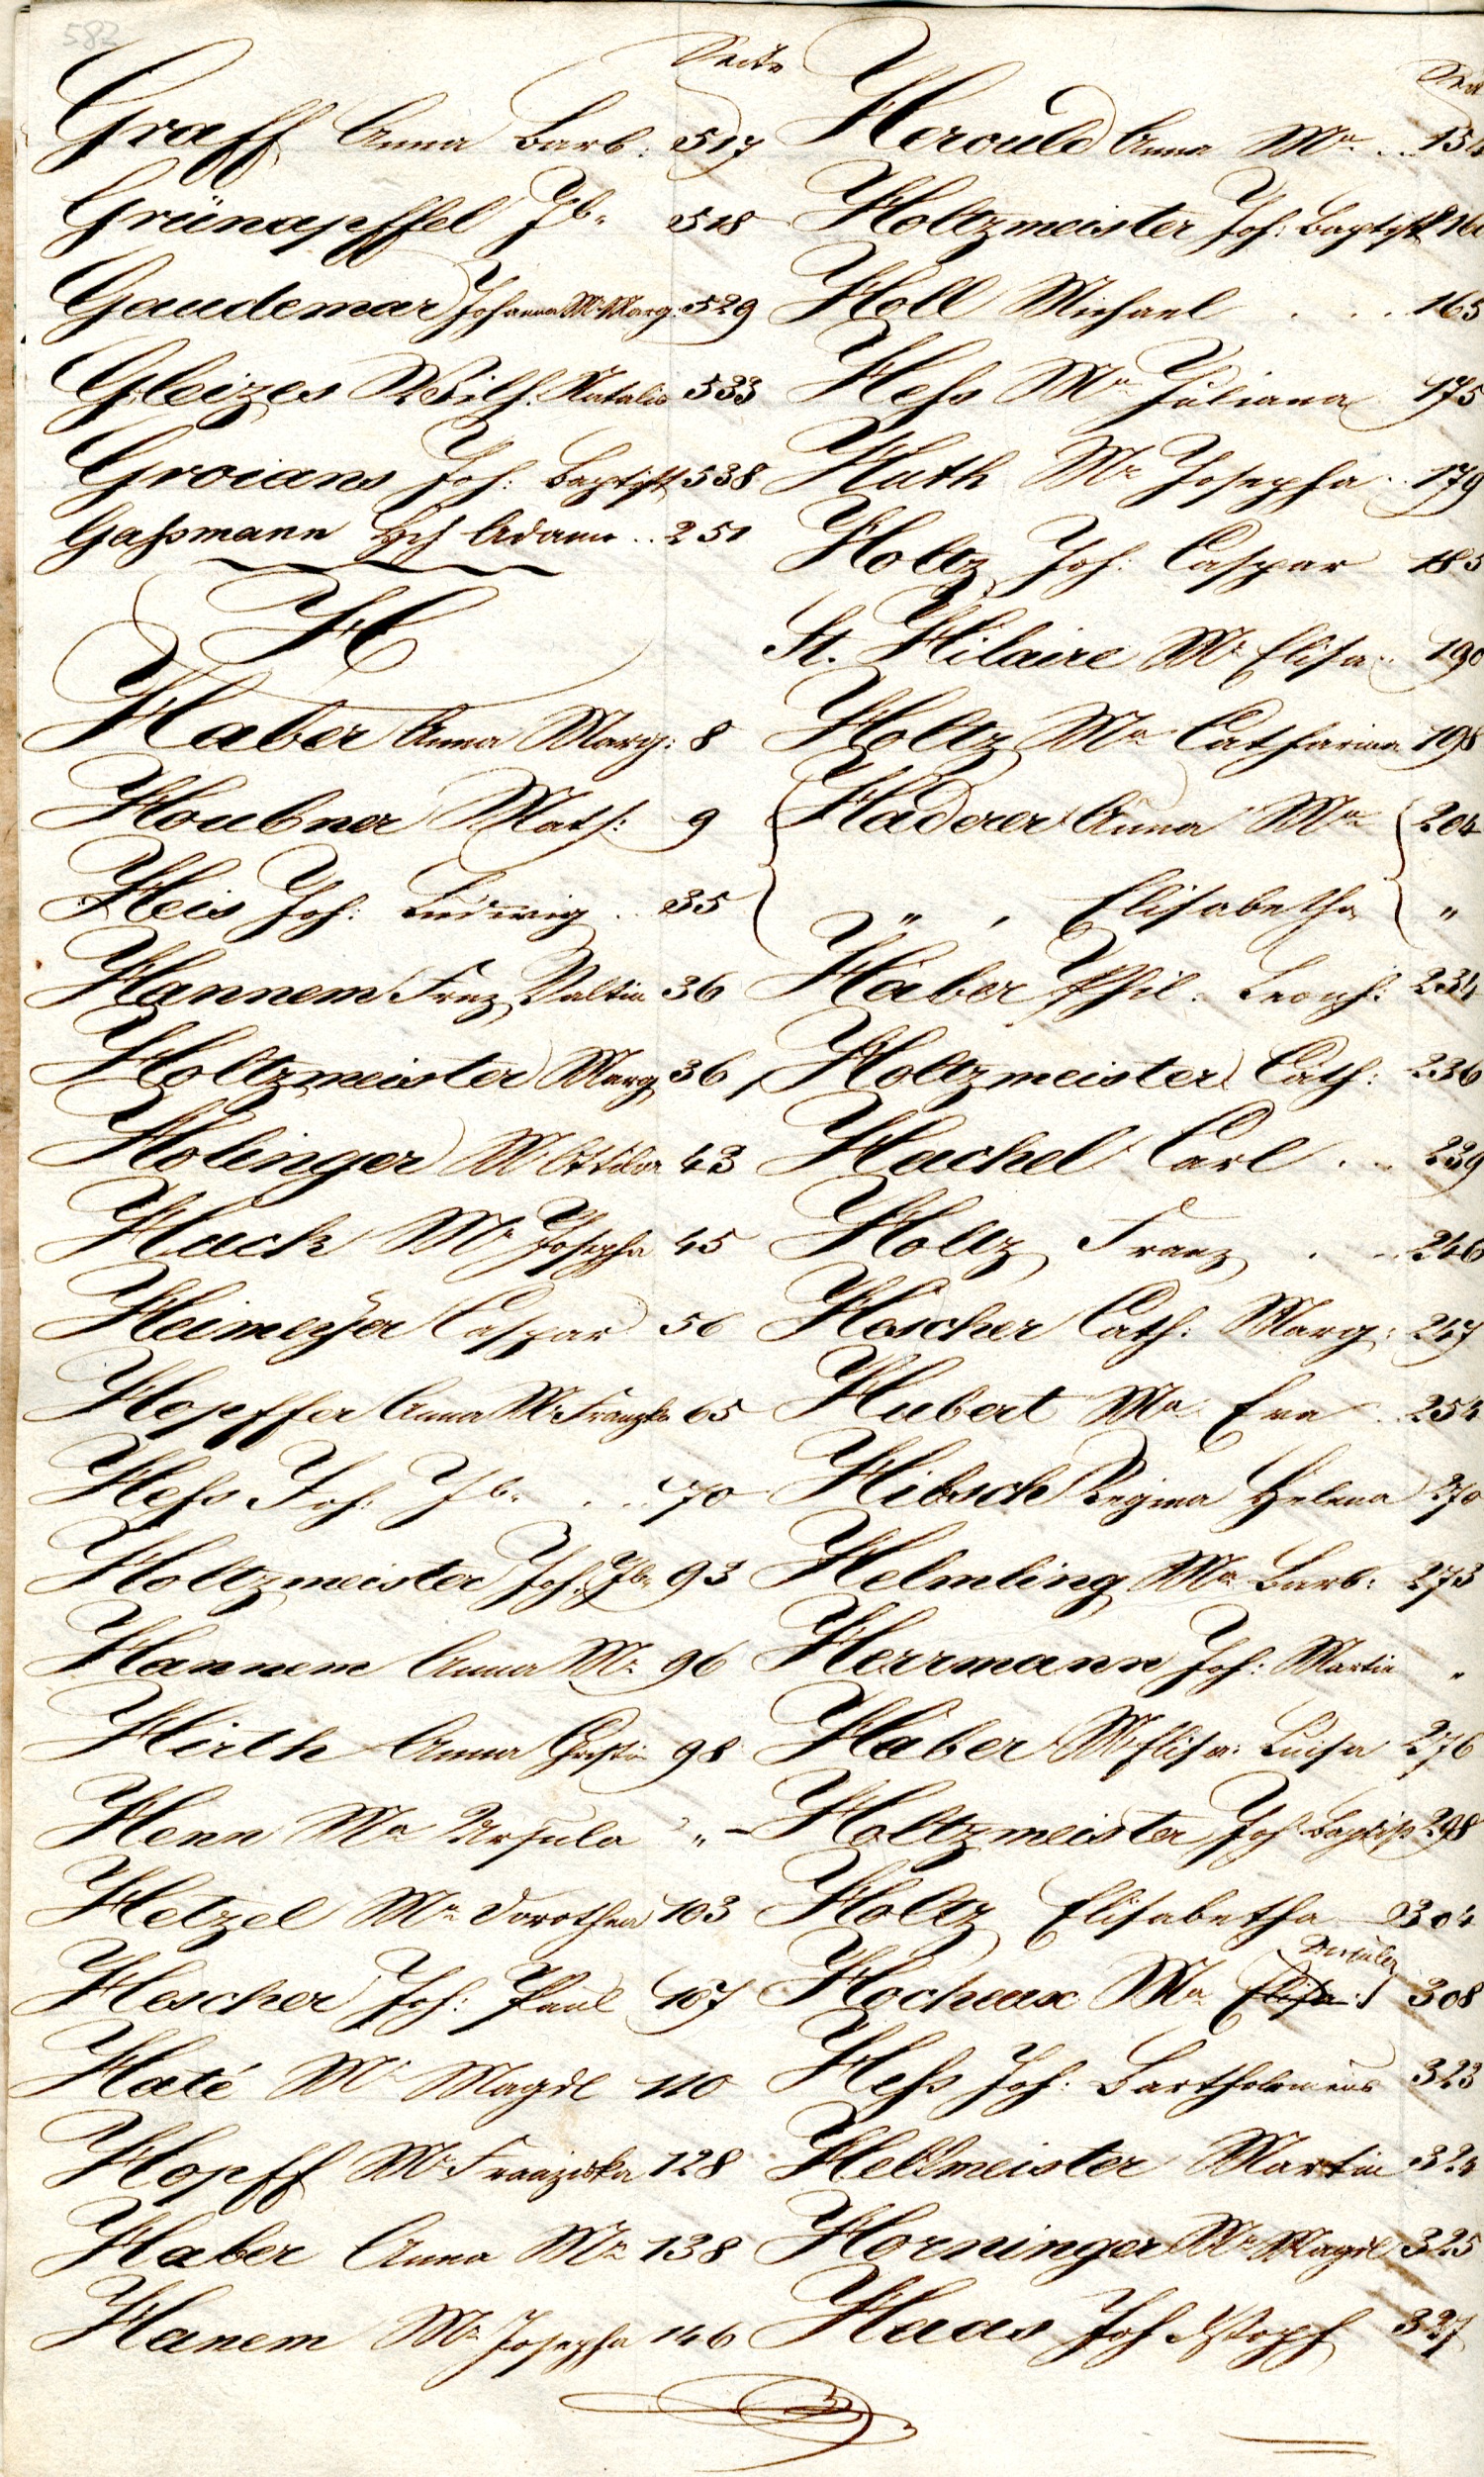 582
Seite
Graff Anna Barb: 517
Grünapffel Jb. 518
Gaudemar Johanna M. Marg. 529
Gleizes Wilh. Natalis 533
Groians Joh: Baptist 538
Gaßmann Adam .. 251
H
Haber Anna Marg: 8
Houbner Math: 9
Heis Joh: Ludwig .. 35
Hannem Frnz Valtin 36
Holtzmeister Marg 36
Holinger M Ottilia 43
Huck Ma Josepha 45
Heimeÿer Caspar 56
Hopffer Anna M. Franzka 65
Heß Joh: Jb. . .. 70
Holtzmeister Joh. Jb. 93
Hannem Anna Ma 96
Hirth Anna 98
Henn Ma Ursula "
Hetzel Ma Dorothea 103
Hescher Joh: Paul 107
Haté Ma Magdl 110
Hopff M. Franziska 128
Haber Anna Ma 138
Hanem Ma Josepha 146
Herould Anna Ma .. 154
Holtzmeister Joh: Baptist
Holl Michael . . . 165
Heß Ma Juliana 175
Huth Ma Josepha .. 179
Holtz Joh: Caspar 185
St. Hilaire Ma Elisa .. 190
Holtz Ma Catharina 198
Haderer Anna Ma 204
" , Elisabetha "
Haber Phil. Leonh: 234
Holtzmeister Cath: 236
Hachel Carl . .. 239
Holtz Franz . .. 246
Hescher Cath: Marg: 247
Hubert Ma Eva . 254
Hibsch Regina Helena 270
Helmling Ma Barb: 273
Herrmann Joh: Martin "
Haber M. Elisa: Luisa 276
Holtzmeister Joh Baptist 298
Holtz Elisabetha 304
Hocheux Ma Elisa: 308
Heß Joh: Bartholomeus 323
Hellmeister Martin 324
Horninger Ma Magdl 325
Haas Joh 327